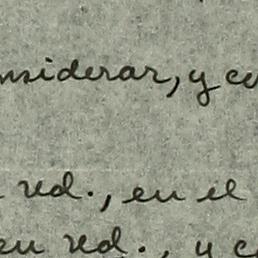 nsiderar, y co
ud., en el
en ud., y c